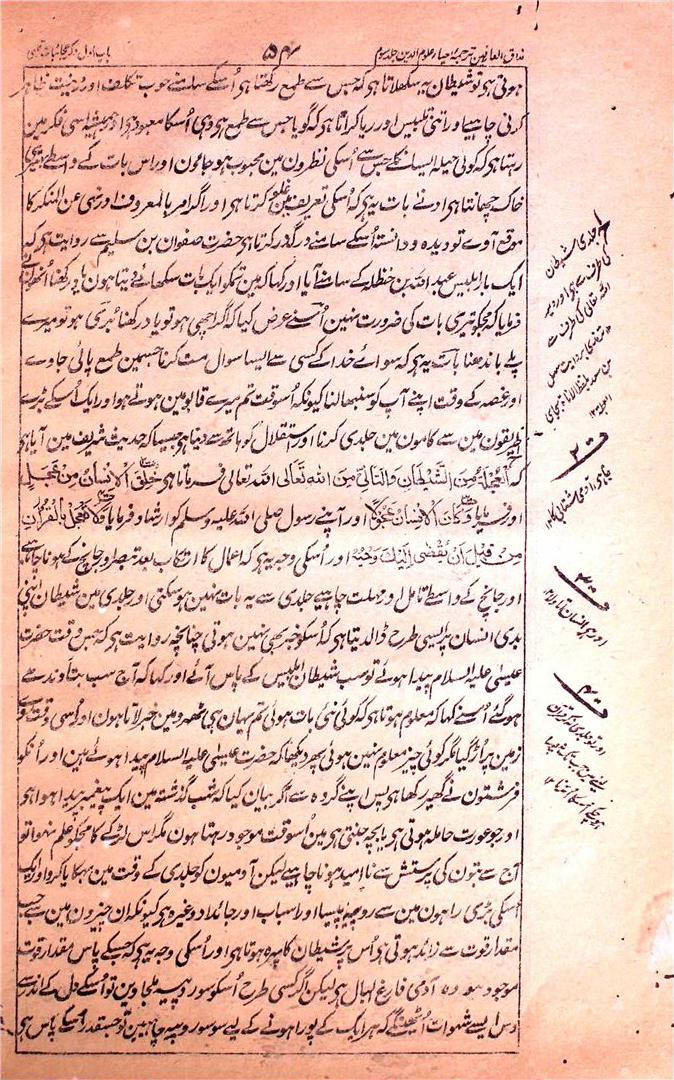 مذاق العارفین ترجمہ احیاء علوم الدین جلد سوم
۵۴
باب اول ذکر عجائبات قلبی
ہوتی ہو تو شیطان یہ سکھلاتا ہی کہ جس سے طمع رکھتا ہی اُسکے سامنے خوب تکلف اور زینت ظاہر
کرنی چاہیے اور اتنی تلبیس اور ریا کراتا ہی کہ گویا جس سے طمع ہو وہی اُسکا معبود ہی اور ہمیشہ اسی فکر مین
رہتا ہی کہ کوئی حیلہ ایسا نکلے جس سے اُسکی نظرون مین محبوب ہو جاؤن اور اس بات کے واسطے بہتیری
خاک چھانتا ہی ادنے بات یہ ہی کہ اُسکی تعریف مین غلو کرتا ہی اور اگر امر بالمعروف اور نہی عن المنکر کا
موقع آوے تو دیدہ و دانستہ اُسکے سامنے درگذر کرتا ہی حضرت صفوان بن سلیم سے روایت ہی کہ
ایک بار ابلیس عبد اللہ بن حنظلہ کے سامنے آیا اور کہا کہ مین تمکو ایک بات سکھائے دیتا ہون یاد رکھنا اُنھون نے
فرمایا کہ مجکو تیری بات کی ضرورت نہین اُسنے عرض کیا کہ اگر اچھی ہو تو یاد رکھنا بُری ہو تو میرے
پلے باندھنا بات یہ ہی کہ سوائے خدا کے کسی سے ایسا سوال مت کرنا جسمین طمع پائی جاوے
اور غصہ کے وقت اپنے آپ کو سنبھالنا کیونکہ اُسوقت تم میرے قابو مین ہوتے ہو اور ایک اُسکے بڑے
طریقون مین سے کامون مین جلدی کرنا اور استقلال کو ہاتھ سے دینا ہو جیسا کہ حدیث شریف مین آیا ہو
کہ اَلْعُجَلَۃُ مِنَ الشَّیْطَانِ وَالتَّانِّی مِنَ اللہِ تَعَالٰی اللہ تعالی فرماتا ہی خُلِقَ الْاِنْسَانُ مِنْ عَجَلٍ
اور فرمایا وَکَانَ الْاِنْسَانُ عَجُوْلًا اور آپنے رسول صلی اللہ علیہ وسلم کو ارشاد فرمایا وَلَا تَعْجَلْ بِالْقُرْاٰنِ
مِنْ قَبْلِ اَنْ یُّقْضٰی اِلَیْکَ وَحْیُہٗ اور اُسکی وجہ یہ ہی کہ اعمال کا ارتکاب بعد تبصر اور جانچنے کے ہونا چاہیے
اور جانچ کے واسطے تامل اور مہلت چاہیے جلدی سے یہ بات نہین ہو سکتی اور جلدی مین شیطان اپنی
بدی انسان پر ایسی طرح ڈال دیتا ہی کہ اُسکو خبر بھی نہین ہوتی چنانچہ روایت ہی کہ جس وقت حضرت
عیسیٰ علیہ السلام پیدا ہوئے تو سب شیطان ابلیس کے پاس آئے اور کہا کہ آج سب بت اوندھے
ہو گئے اُسنے کہا کہ معلوم ہوتا ہی کہ کوئی نئی بات ہوئی تم یہان ہی ٹھہرو مین خبر لاتا ہون اور اُسی وقت
زمین پر اُڑ گیا مگر کوئی چیز معلوم نہین ہوئی پھر دیکھا کہ حضرت عیسیٰ علیہ السلام پیدا ہوئے ہین اور اُنکو
فرشتون نے گھیر رکھا ہی پس اپنے گروہ سے آکر بیان کیا کہ شب گذشتہ مین ایک پیغمبر پیدا ہوا ہو
اور جو عورت حاملہ ہوتی ہی یا بچہ جنتی ہی مین اُسوقت موجود رہتا ہون مگر اس لڑکے کا مجکو علم نہوا تو
آج سے بتون کی پرستش سے نا امید ہونا چاہیے لیکن آدمیون کو جلدی کے وقت مین بہکایا کرو اور ایک
اُسکی بڑی راہون مین سے روپیہ پیسا اور اسباب اور جائداد وغیرہ ہی کیونکہ ان چیزون مین سے جب
مقدار قوت سے زائد ہوتی ہی اُس پر شیطان کا پہرہ ہوتا ہی اور اُسکی وجہ یہ ہی کہ جسکے پاس مقدار قوت
موجود ہو وہ آدمی فارغ البال ہی لیکن اگر کسی طرح اُسکو سو روپیہ ملجاوین تو اُسکے دل کے اندر سے
دس ایسے شہوات اُٹھینگے کہ ہر ایک کے پورا ہونے کے لیے سو سو روپیہ چاہیین تو جسقدر اُسکے پاس ہی
جلدی شیطان
کی طرف سے ہی اور دیر
اللہ تعالی کی طرف سے
ترمذی بروایت سہل
بن سعد بلفظ الاناۃ
۲
بنا ہی آدمی شتابی کا ۱۲
۳
اور ہی انسان اُتاولا ۱۲
۴
اور تو جلدی نہ کر قرآن
لینے مین جب تک
پورا نہ ہو چکے اُسکا اُترنا ۱۲